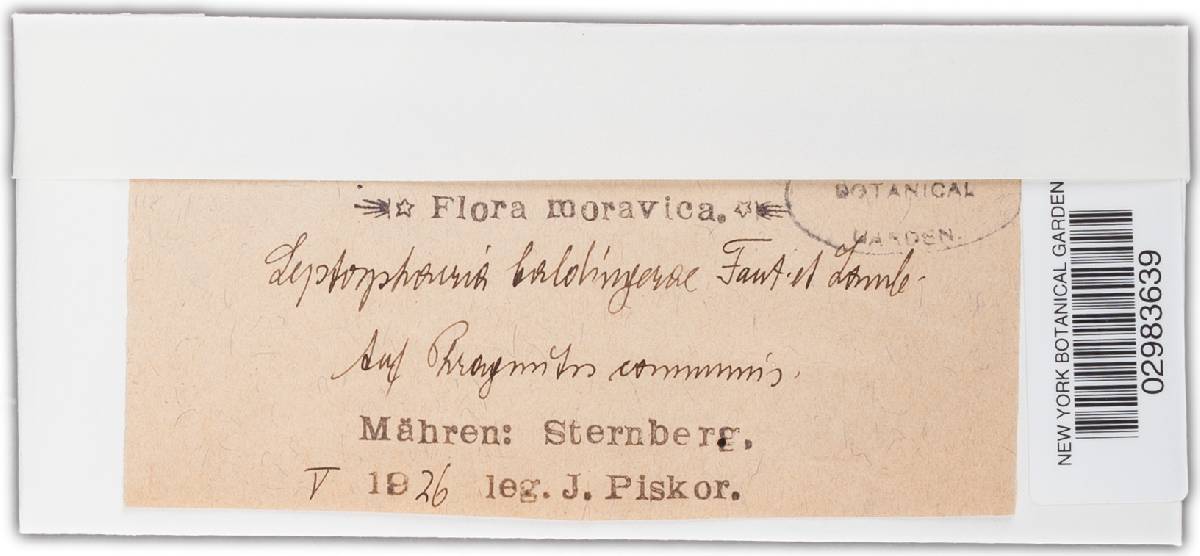 ☆ Flora moravica. ☆
BOTANICAL
GARDEN.
Leptosphaeria baldingerae Faut. et Lamb.
Auf Phragmitis communis.
Mähren: Sternberg.
V 1926 leg. J. Piskor.
NEW YORK BOTANICAL GARDEN
02983639